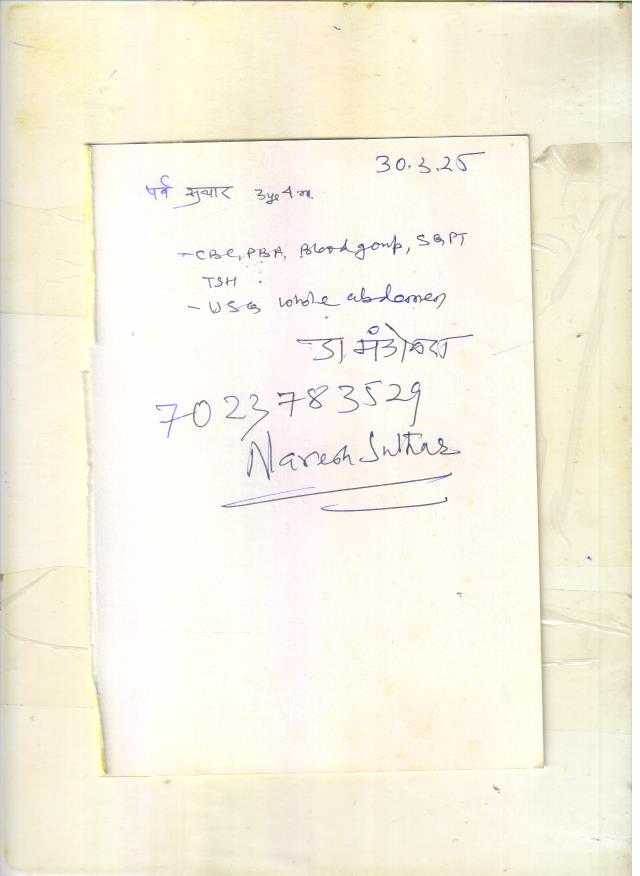 30.3.25
पर्व सुथार 3yr 4m.
- CBC, PBA, Blood goup, SGPT
TSH
- USG whole abdomen
डा. मंडोवरा
7023783529
Naresh Suthar